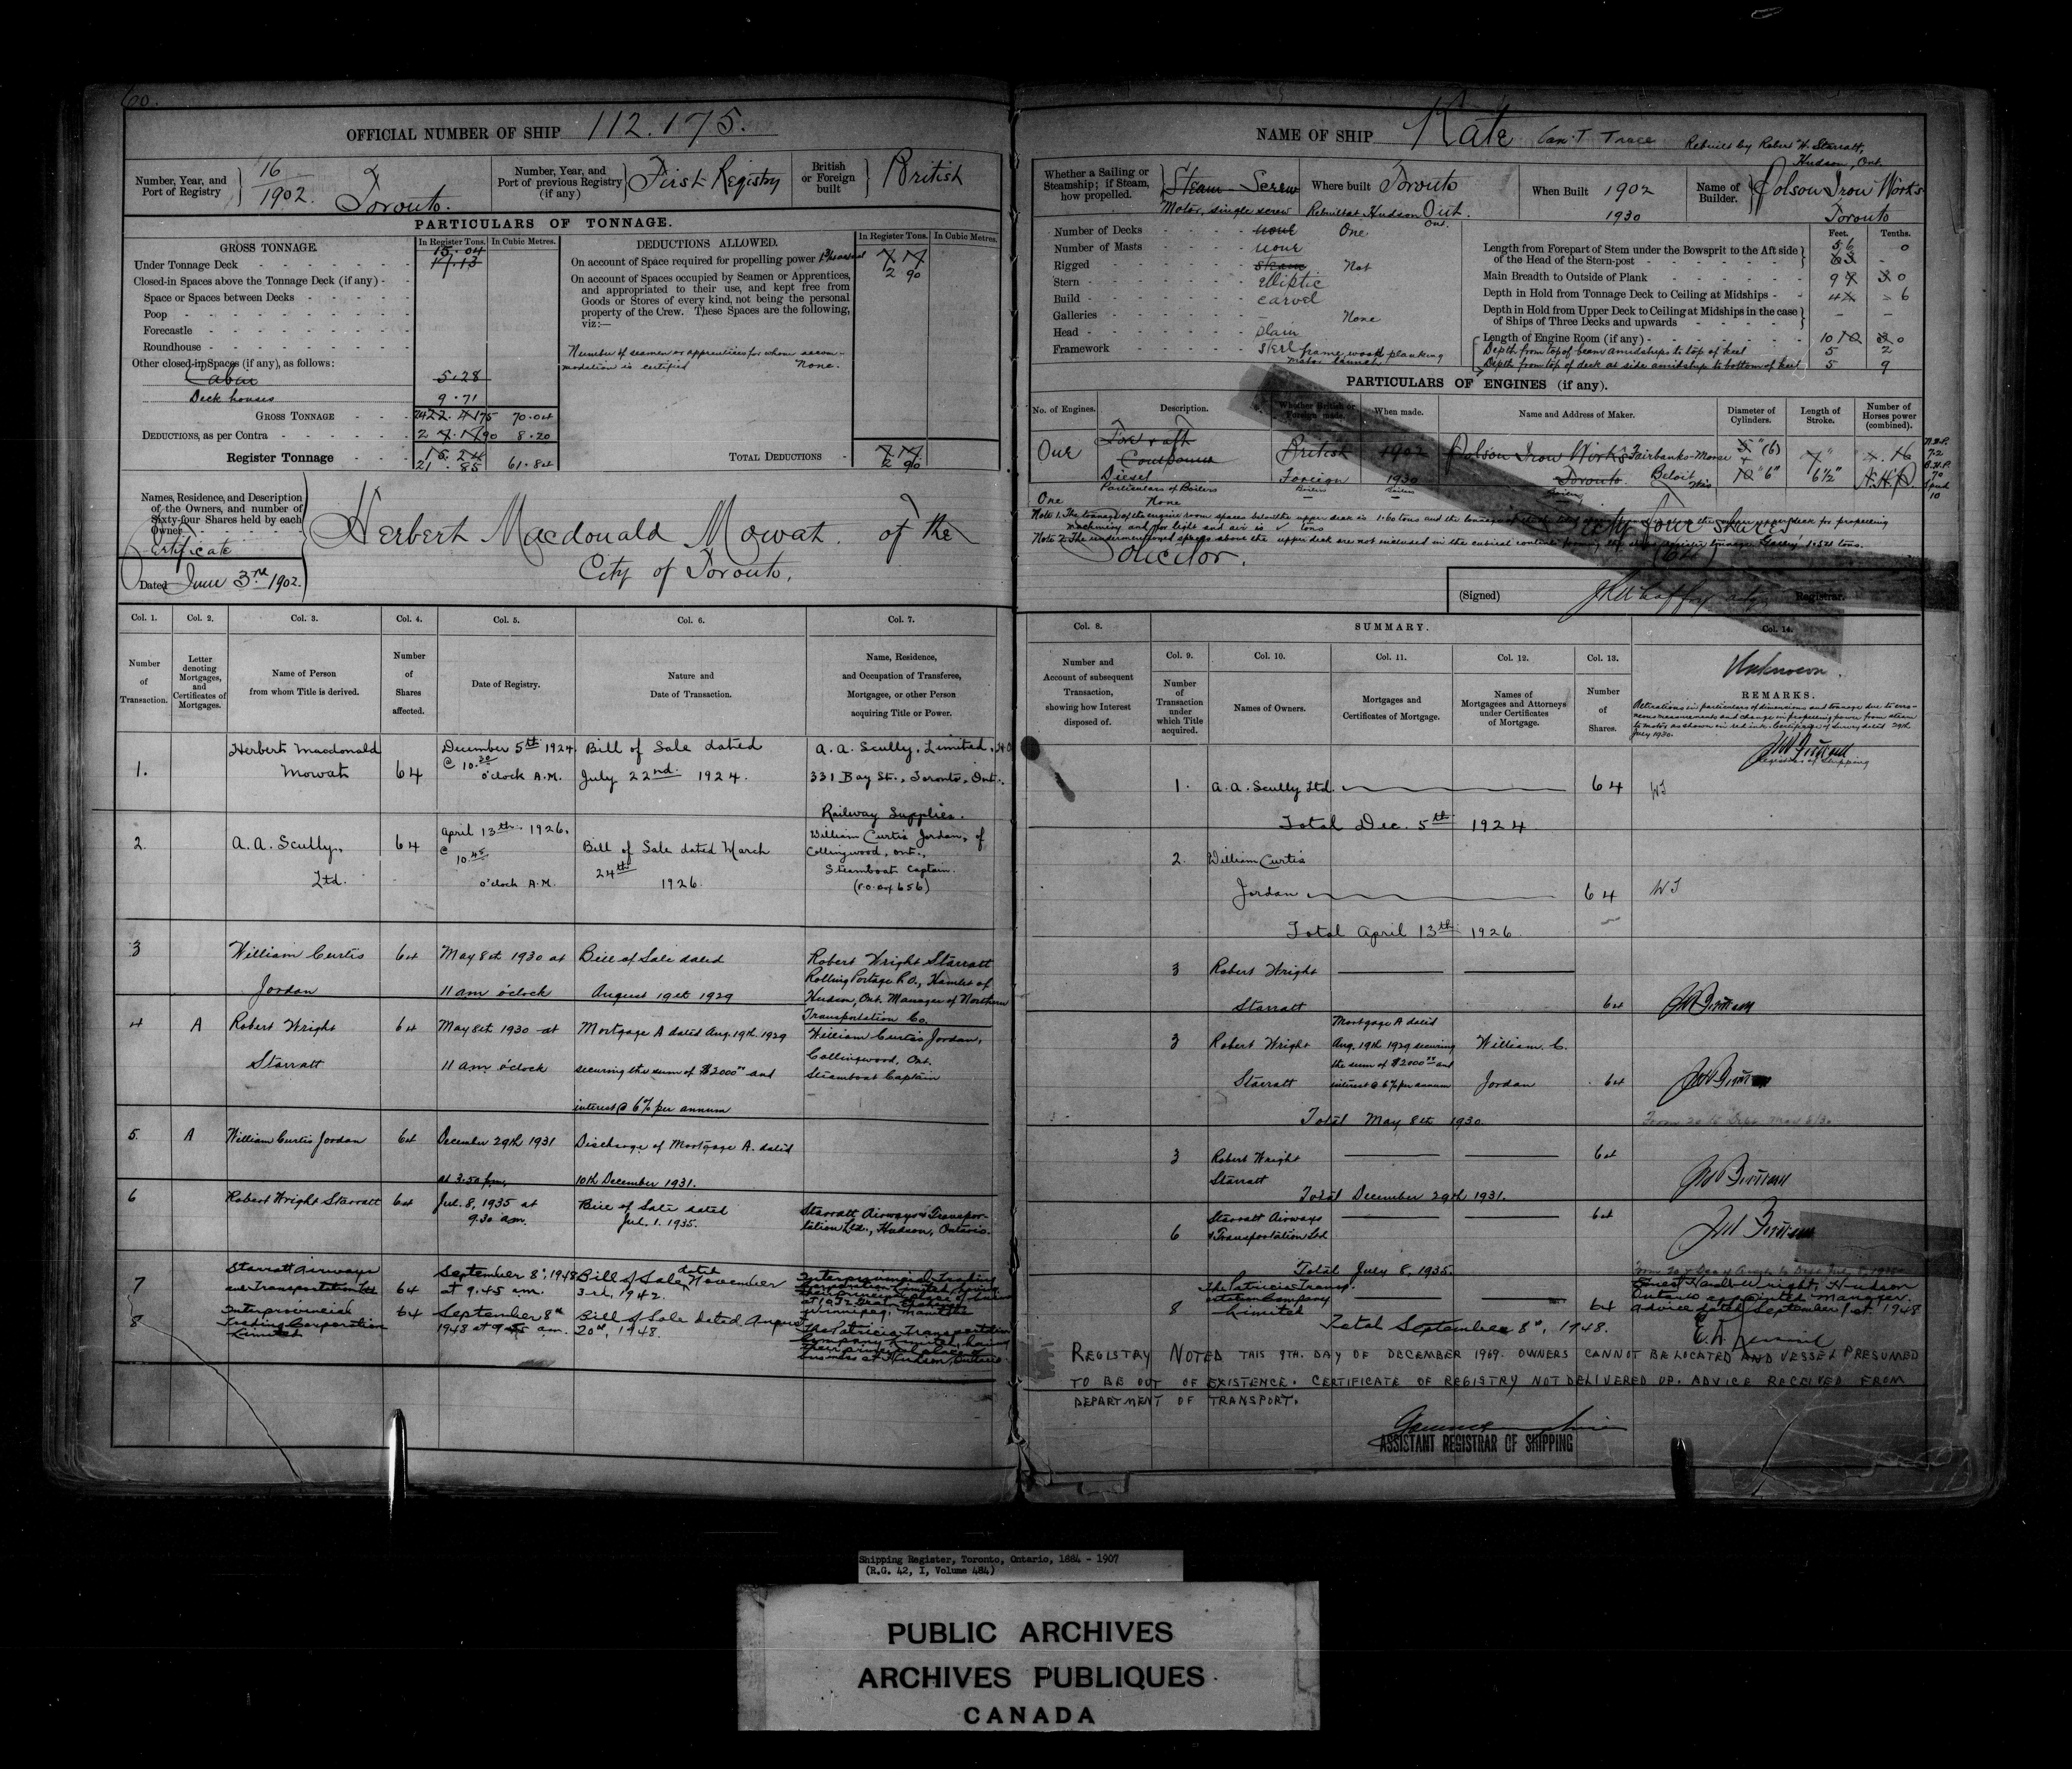 60.
OFFICIAL NUMBER OF SHIP 112.175.
Number, Year, and Port of Registry 16/1902. Toronto.
Number, Year, and Port of previous Registry (if any) First Registry
British or Foreign built British
PARTICULARS OF TONNAGE.
GROSS TONNAGE.
In Register Tons. In Cubic Metres.
Under Tonnage Deck 15.04 17.13
Closed-in Spaces above the Tonnage Deck (if any)
Space or Spaces between Decks
Poop
Forecastle
Roundhouse
Other closed-in Spaces (if any), as follows:
Cabin 5.28
Deck houses 9.71
GROSS TONNAGE 70.04
DEDUCTIONS, as per Contra 8.20
Register Tonnage 15.24
21.85 61.84
DEDUCTIONS ALLOWED.
In Register Tons. In Cubic Metres.
On account of Space required for propelling power
2 90
On account of Spaces occupied by Seamen or Apprentices,
and appropriated to their use, and kept free from
Goods or Stores of every kind, not being the personal
property of the Crew. These Spaces are the following,
viz:—
Number of seamen or apprentices for whom accom-
modation is certified None.
TOTAL DEDUCTIONS
2 90
Names, Residence, and Description
of the Owners, and number of
Sixty-four Shares held by each
Owner
Certificate
Dated June 3rd 1902.
Herbert Macdonald Mowat of the
City of Toronto,
Col. 1. Col. 2. Col. 3. Col. 4. Col. 5. Col. 6. Col. 7.
Number of Transaction.
Letter denoting Mortgages, and Certificates of Mortgages.
Name of Person from whom Title is derived.
Number of Shares affected.
Date of Registry.
Nature and Date of Transaction.
Name, Residence, and Occupation of Transferee, Mortgagee, or other Person acquiring Title or Power.
1. Herbert Macdonald Mowat 64 December 5th 1924 @ 10.30 o'clock A.M. Bill of Sale dated July 22nd 1924. A. A. Scully, Limited, 331 Bay St., Toronto, Ont. Railway Supplies.
2. A. A. Scully, Ltd. 64 April 13th 1926, @ 10.45 o'clock A.M. Bill of Sale dated March 24th 1926. William Curtis Jordan, of Collingwood, Ont., Steamboat Captain. (P.O. Box 656)
3 William Curtis Jordan 64 May 8th 1930 at 11 am o'clock Bill of Sale dated August 19th 1929 Robert Wright Starratt Rolling Portage P.O., Hamlet of Hudson, Ont. Manager of Northern Transportation Co.
4 A Robert Wright Starratt 64 May 8th 1930 at 11 am o'clock Mortgage A dated Aug. 19th 1929 securing the sum of $2000.00 and interest @ 6% per annum William Curtis Jordan, Collingwood, Ont. Steamboat Captain
5. A William Curtis Jordan 64 December 29th 1931 at 3.50 pm Discharge of Mortgage A. dated 10th December 1931.
6 Robert Wright Starratt 64 Jul. 8, 1935 at 9.30 am. Bill of Sale dated Jul. 1. 1935. Starratt Airways & Transportation Ltd., Hudson, Ontario.
7 Starratt Airways and Transportation Ltd 64 September 8th, 1948 at 9.45 am. Bill of Sale dated November 3rd, 1942. Interprovincial Trading Corporation Limited, having their principal place of business at Winnipeg, Manitoba
8 Interprovincial Trading Corporation Limited 64 September 8th 1948 at am. Bill of Sale dated August 20th, 1948. The Patricia Transportation Company Limited, having their principal place of business at Hudson, Ontario
NAME OF SHIP Kate Can't Trace Rebuilt by Robert W. Starratt, Hudson, Ont.
Whether a Sailing or Steamship; if Steam, how propelled. Steam Screw
Motor, single screw
Where built Toronto
Rebuilt at Hudson Ont.
When Built 1902
1930
Name of Builder. Polson Iron Works Toronto
Number of Decks none One
Number of Masts none
Rigged steam Not
Stern elliptic
Build carvel
Galleries None
Head plain
Framework steel frame wood planking
motor launch
Feet. Tenths.
Length from Forepart of Stem under the Bowsprit to the Aft side of the Head of the Stern-post 56 0
63
Main Breadth to Outside of Plank 9 0
Depth in Hold from Tonnage Deck to Ceiling at Midships 4 6
Depth in Hold from Upper Deck to Ceiling at Midships in the case of Ships of Three Decks and upwards
Length of Engine Room (if any) 10 0
Depth from top of beam amidships to top of keel 5 2
Depth from top of deck at side amidships to bottom of keel 5 9
PARTICULARS OF ENGINES (if any).
No. of Engines. Description. Whether British or Foreign made. When made. Name and Address of Maker. Diameter of Cylinders. Length of Stroke. Number of Horses power (combined).
One Fore & aft Compound British 1902 Polson Iron Works Toronto
Diesel Foreign 1930 Fairbanks-Morse Beloit Wis (6) 6" 7" 6½" N.H.P. 7.2 B.H.P. 70 Speed 10
Particulars of Boilers
One None
Note 1. The tonnage of the engine room spaces below the upper deck is 1.60 tons and the tonnage of the upper deck for propelling
machinery and for light and air is tons
Note 2. The undermentioned spaces above the upper deck are not included in the cubical contents forming the register tonnage. Galley 1.521 tons.
Solicitor. Sixty four shares (64)
(Signed) Registrar.
Col. 8. SUMMARY. Col. 14.
Col. 9. Col. 10. Col. 11. Col. 12. Col. 13.
Number and Account of subsequent Transaction, showing how Interest disposed of.
Number of Transaction under which Title acquired.
Names of Owners.
Mortgages and Certificates of Mortgage.
Names of Mortgagees and Attorneys under Certificates of Mortgage.
Number of Shares.
Unknown.
REMARKS.
Alterations in particulars of dimensions and tonnage due to erro-
neous measurements and change in propelling power from steam
to motor as shown in red ink. Certificate of Survey dated 29th
July 1930.
Registrar of Shipping
1. A. A. Scully Ltd. 64
Total Dec. 5th 1924
2. William Curtis Jordan 64
Total April 13th 1926.
3 Robert Wright Starratt 64
3 Robert Wright Starratt Mortgage A dated Aug. 19th 1929 securing the sum of $2000.00 and interest @ 6% per annum William C. Jordan 64
Total May 8th 1930.
3 Robert Wright Starratt 64
Total December 29th 1931.
6 Starratt Airways & Transportation Ltd 64
Total July 8, 1935.
8 The Patricia Transportation Company Limited 64
Total September 8th, 1948.
Ernest Harold Wright, Hudson
Ontario appointed manager
advice dated September 1st 1948
REGISTRY NOTED THIS 9TH. DAY OF DECEMBER 1969. OWNERS CANNOT BE LOCATED AND VESSEL PRESUMED
TO BE OUT OF EXISTENCE. CERTIFICATE OF REGISTRY NOT DELIVERED UP. ADVICE RECEIVED FROM
DEPARTMENT OF TRANSPORT.
ASSISTANT REGISTRAR OF SHIPPING
Shipping Register, Toronto, Ontario, 1884 - 1907
(R.G. 42, I, Volume 484)
PUBLIC ARCHIVES
ARCHIVES PUBLIQUES
CANADA